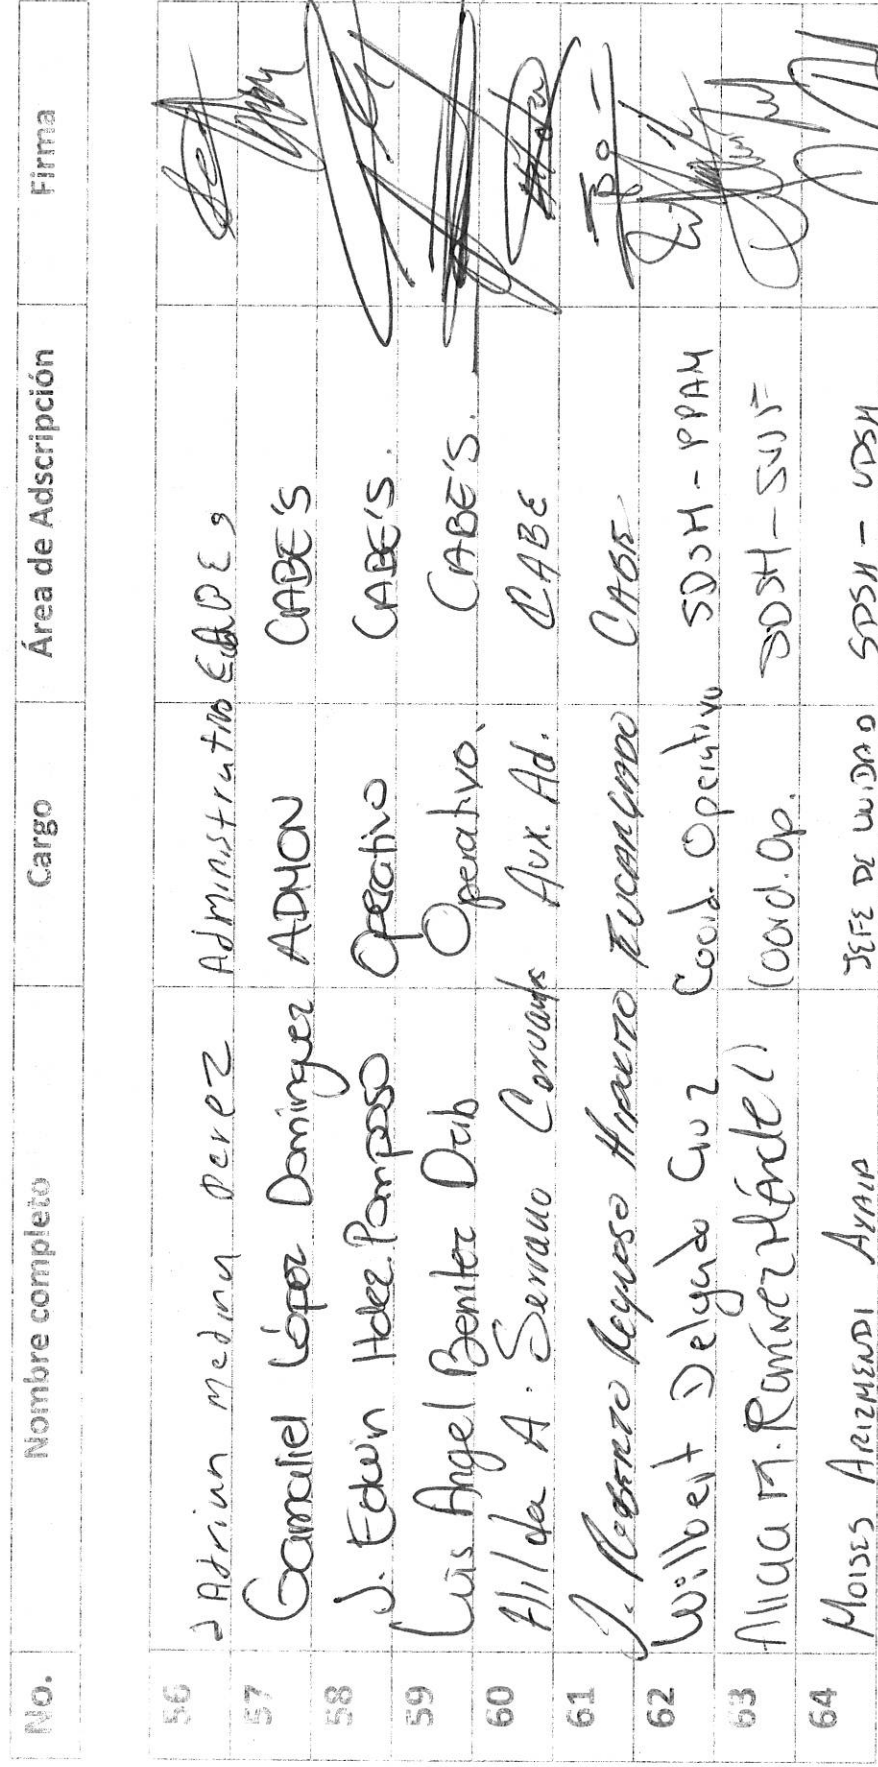 No. Nombre completo Cargo Área de Adscripción Firma
56 Adrian medina perez Administrativo
57 Gamaliel López Dominguez ADMON CABE'S
58 J. Edwin Hdez. Pomposo Operativo CABE'S.
59 Luis Angel Benitez Operativo. CABE'S.
60 Hilda A. Serrano Cervantes Aux. Ad. CABE
61 J. Roberto Reynoso Hipolito ENCARGADO CABE
62 Wilbert Delgado Cruz Coord. Operativo SDSH - PPAM
63 Alicia M. Ramírez Méndez Coord. Op. SDSH -
64 MOISES ARIZMENDI AYALA JEFE DE UNIDAD SDSH - UDSH